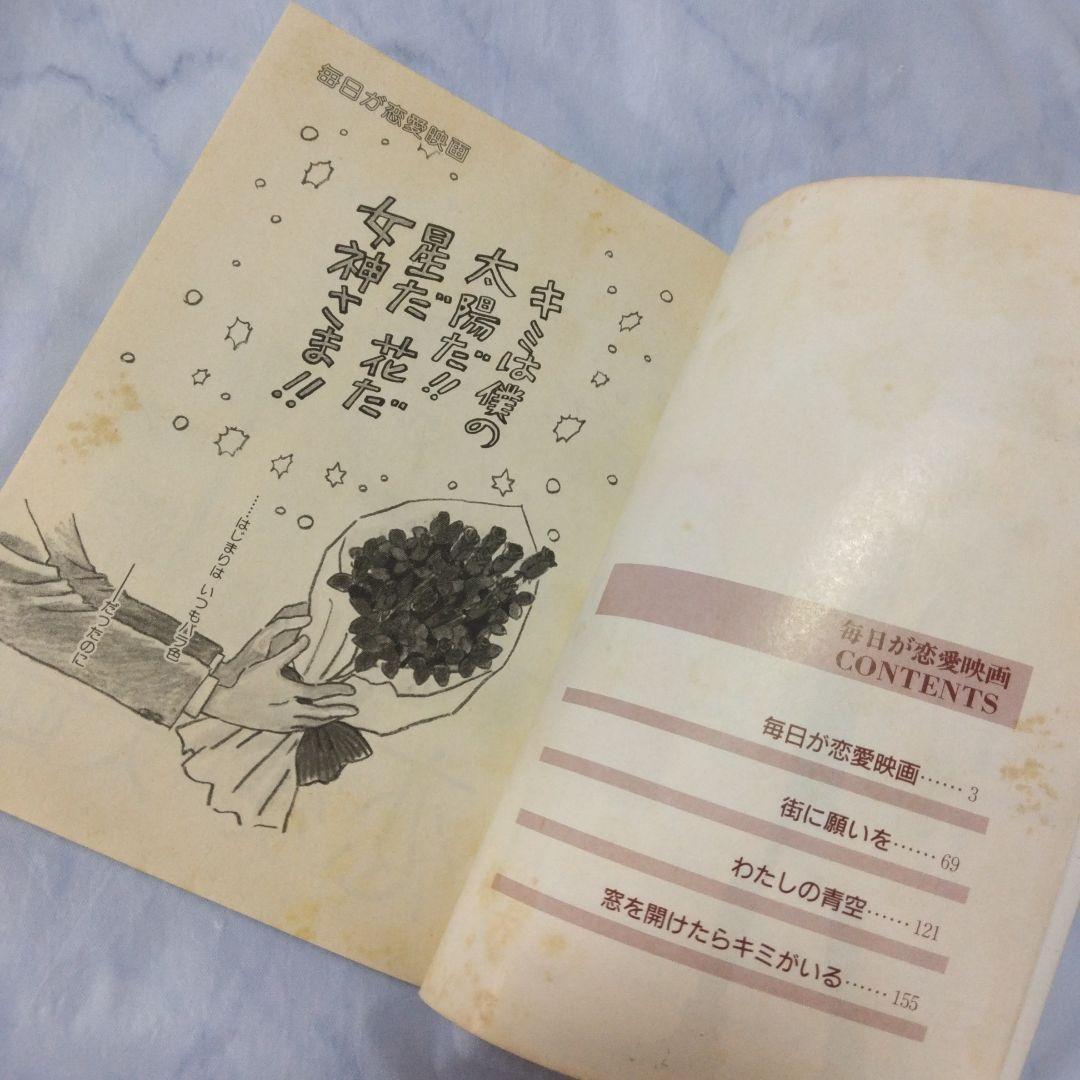 毎日が恋愛映画
キミは僕の
太陽だ!!
星だ 花だ
女神さま!!
……はじまりは いつもバラ色
――だったのに
毎日が恋愛映画
CONTENTS
毎日が恋愛映画……3
街に願いを……69
わたしの青空……121
窓を開けたらキミがいる……155